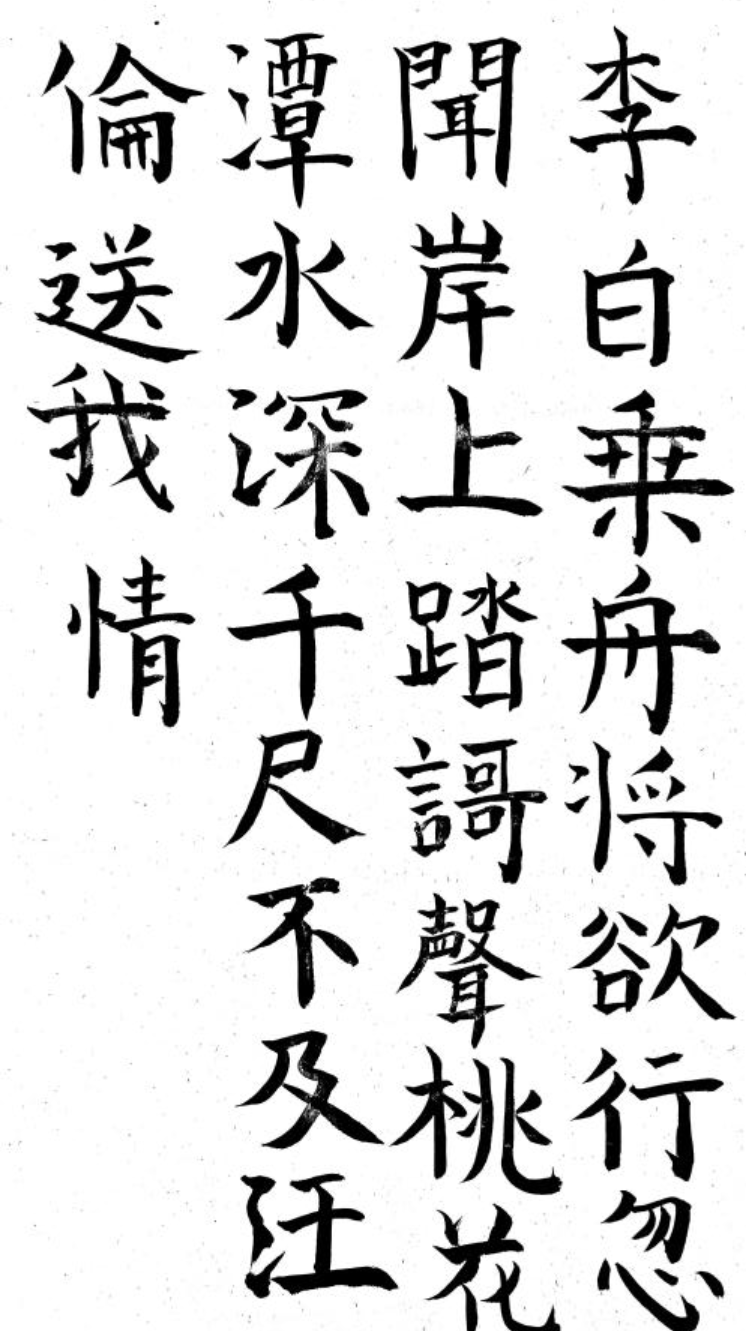 李白乗舟将欲行忽
聞岸上踏謌聲桃花
潭水深千尺不及汪
倫送我情